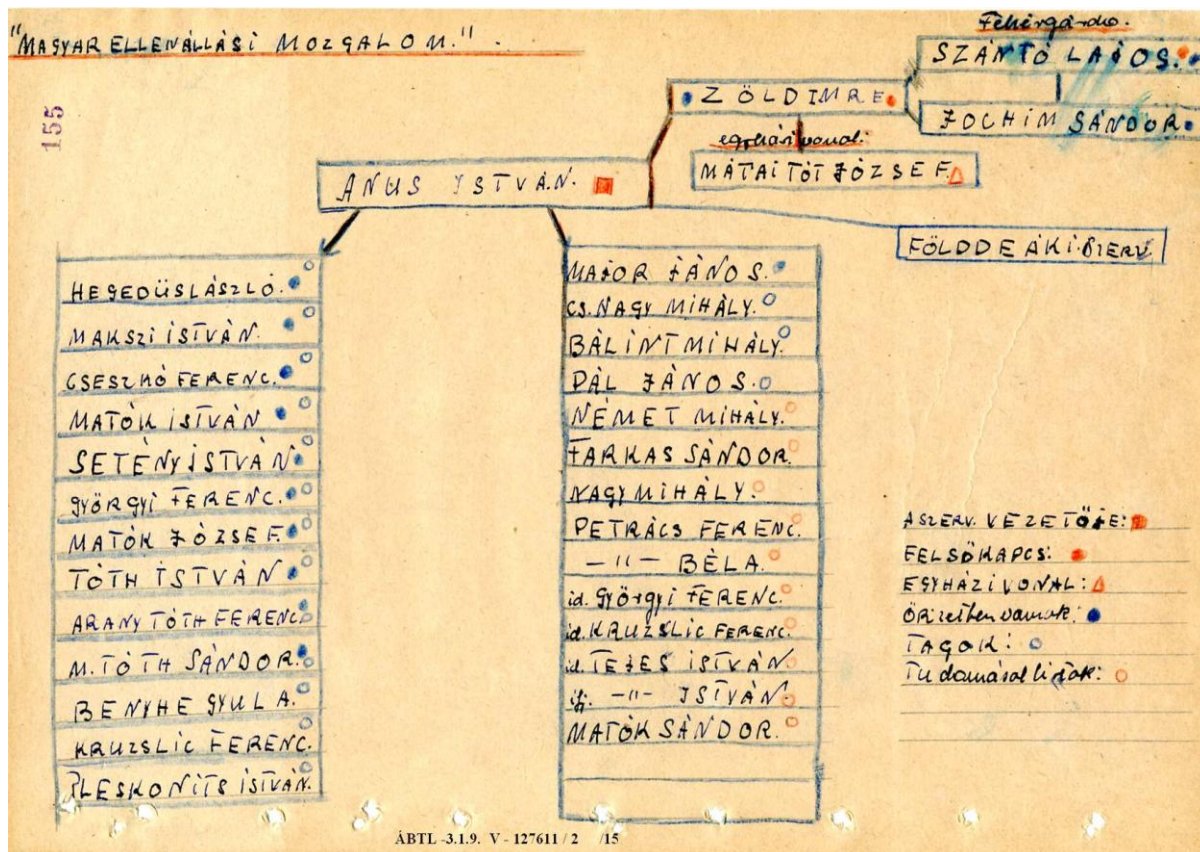 "MAGYAR ELLENÁLLÁSI MOZGALOM."
155
Fehérgárda.
SZÁNTÓ LAJOS.
ZÖLD IMRE.
JOCHIM SÁNDOR.
egyházi vonal:
MÁTAI TÓT JÓZSEF.
ANUS ISTVÁN.
FÖLDDEÁKI SZERV.
HEGEDÜS LÁSZLÓ.
MAKSZI ISTVÁN.
CSESZKÓ FERENC.
MATÓK ISTVÁN
SETÉNYI ISTVÁN
GYÖRGYI FERENC.
MATÓK JÓZSEF.
TÓTH ISTVÁN
ARANY TÓTH FERENC.
M. TÓTH SÁNDOR.
BENYHE GYULA.
KRUZSLIC FERENC.
PLESKONITS ISTVÁN.
MAJOR JÁNOS.
CS. NAGY MIHÁLY.
BÁLINT MIHÁLY.
PÁL JÁNOS.
NÉMET MIHÁLY.
FARKAS SÁNDOR.
NAGY MIHÁLY.
PETRÁCS FERENC.
-"- BÉLA.
id. GYÖRGYI FERENC.
id. KRUZSLIC FERENC.
id. TEJES ISTVÁN
ifj. -"- ISTVÁN
MATÓK SÁNDOR.
A SZERV. VEZETŐJE:
FELSŐKAPCS:
EGYHÁZI VONAL:
Őrizetben vannak:
TAGOK:
Tudomásal birtak:
ÁBTL -3.1.9. V - 127611 / 2 /15